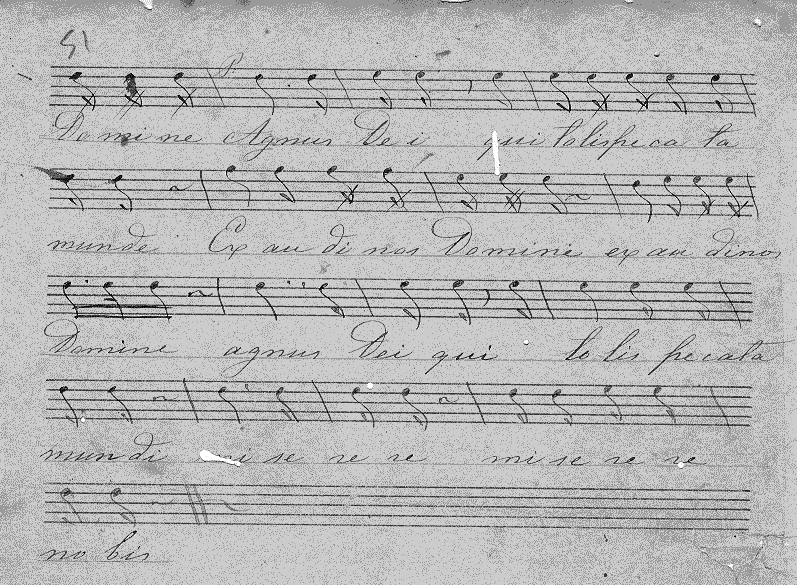 51
P.
Do mi ne Agnus De i qui tolis pe ca ta
mundi Ex au di nos Domine ex au di nos
Domine agnus Dei qui to lis pe cata
mun di mi se re re mi se re re
no bis